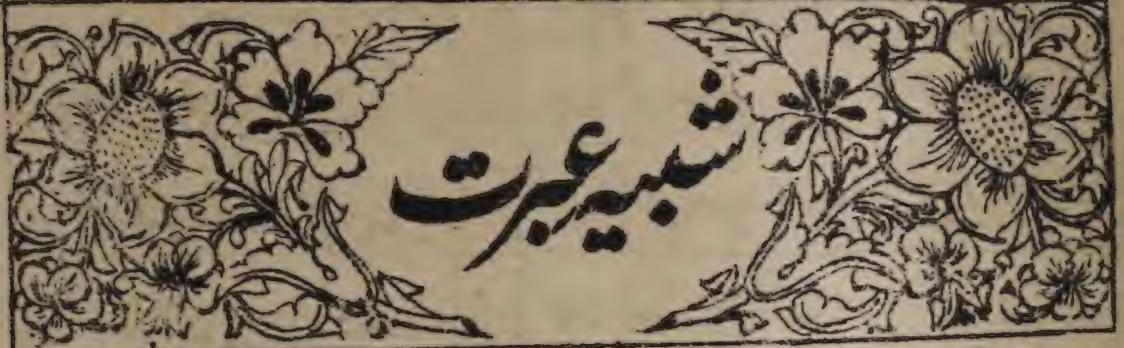 شبیہ عبرت